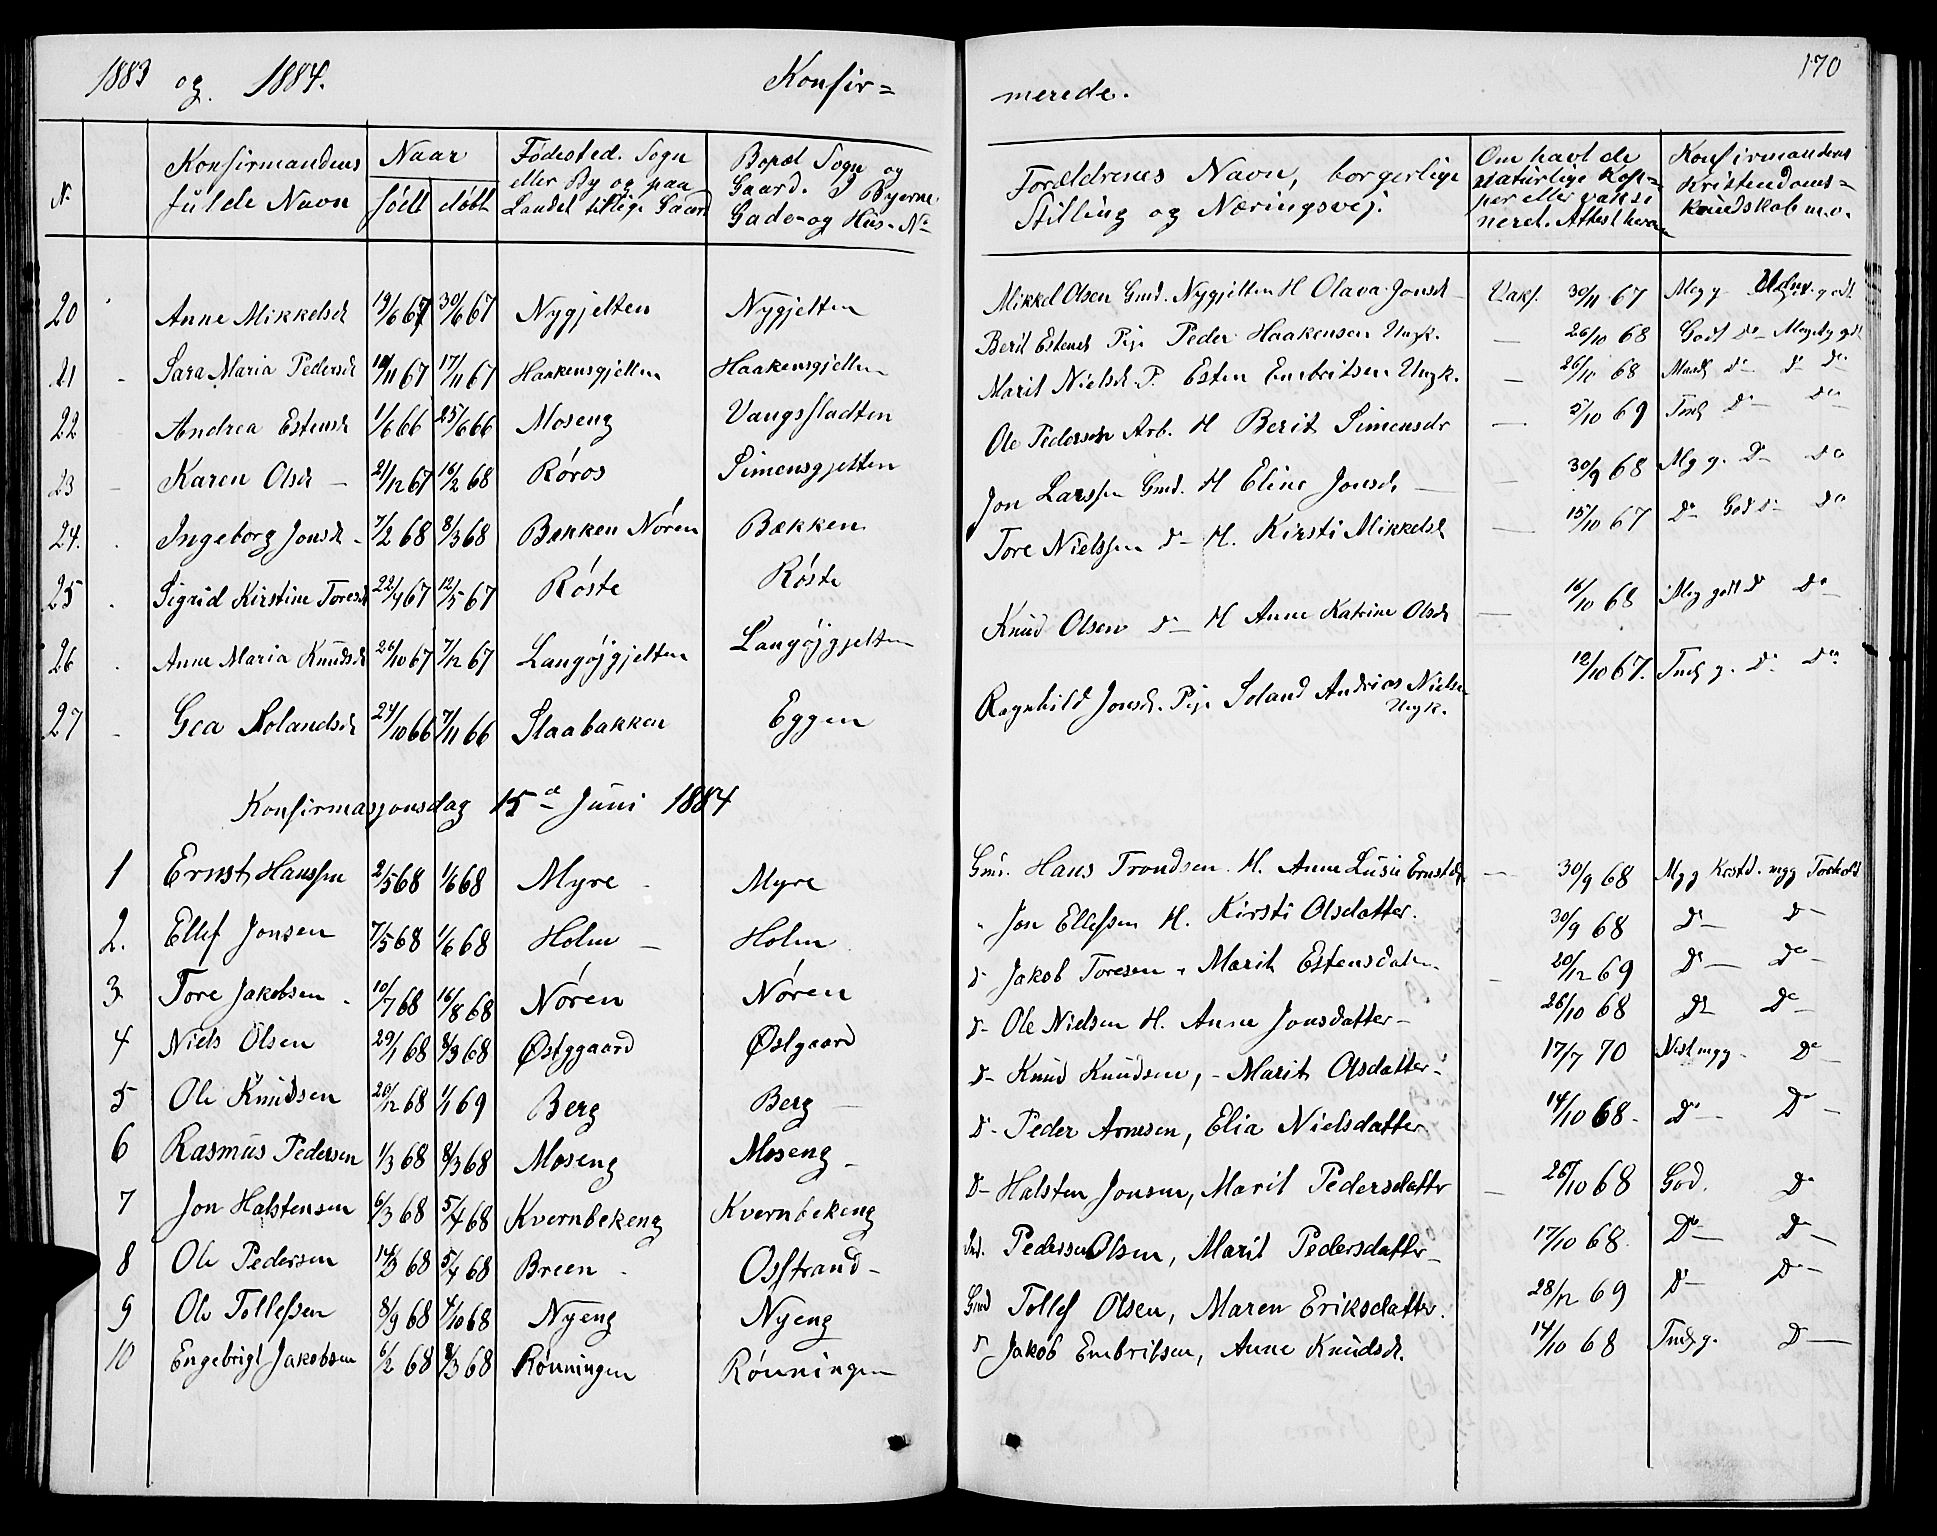 1883 og 1884. Konfir=
merede. 170
N. Konfirmandens fulde Navn Naar født døbt Fødested. Sogn eller By og paa Landet tillige Gaard Bopæl Sogn og Gaard. I Byerne Gade og Hus-No
Forældrenes Navn, borgerlige Stilling og Næringsvej. Om havt de naturlige Kopper eller vaksineret. Attest herom Konfirmandens Kristendoms= kundskab m.v.
20 Anne Mikkelsd 19/6 67 30/6 67 Nygjelten Nygjelten Mikkel Olsen Gmd. Nygjelten H Olava Jonsd Vaks. 30/11 67 Meg g. Udm. godt
21 Sara Maria Pedersd 10/11 67 17/11 67 Haakensgjelten Haakensgjelten Berit Estensd Pige Peder Haakensen Ungk. — 26/10 68 Godt Do Meget godt
22 Andrea Estensd 1/6 66 25/6 66 Moseng Vangsladten Marit Nielsd P. Esten Embritsen Ungk. — 26/10 68 Do Do Do
23 Karen Olsd — 21/12 67 16/2 68 Røros Simensgjelten Ole Pedersen Arb. H Berit Simensdr — 2/10 69 Do Do
24. Ingeborg Jonsd - 7/2 68 8/3 68 Bakken Nören Bakken Jon Larssen Gmd. H Eline Jonsd. — 30/9 68 Mg g. Do Do
25 Sigrid Kirstine Toresd 22/4 67 12/5 67 Röste Röste Tore Nielssen Do H. Kirsti Mikkelsd — 15/10 67 Do God Do Do
26 Anne Maria Knudsd 26/10 67 7/12 67 Langøjgjelten Langøjgjelten Knud Olsen Do H Anne Katrine Olsd — 16/10 68 Meg godt Do Do
27 Gea Solandsd 24/10 66 7/11 66 Slaabakken Eggen Ragnhild Jonsd. Pige Soland Andrias Nielsen Ungk. 12/10 67. g. Do Do
Konfirmasjonsdag 15de Juni 1884
1 Ernst Hanssen 2/5 68 1/6 68 Myre - Myre Gmd. Hans Trondsen. H. Anne Lusie Ernstd. — 30/9 68 Mgg Krstd. mgg Forhold
2. Ellef Jonsen 7/5 68 1/6 68 Holm — Holm " Jon Ellefsen H. Kirsti Olsdatter. 30/9 68 Do Do
3 Tore Jakobsen - 10/7 68 16/8 68 Nören Nören Do Jakob Toresen " Marit Estensdatr. — 20/12 69 Do Do
4 Niels Olsen 29/1 68 8/3 68 Østggaard Østgaard Do Ole Nielsen H. Anne Jonsdatter - 26/10 68 Do Do
5 Ole Knudsen 20/12 68 1/1 69 Berg Berg — Do Knud Knudsen, - Marit Olsdatter 17/7 70 Nest mgg. Do
6 Rasmus Pedersen 1/3 68 8/3 68 Moseng Moseng - Do Peder Arnesen, Elia Nielsdatter 14/10 68. Do Do
7 Jon Halstensen 6/3 68 5/4 68 Kvernbekeng Kvernbekeng Do Halsten Jonsen, Marit Pedersdattr — 26/10 68 God. Do
8 Ole Pedersen 14/3 68 5/4 68 Breen - Osstrand - Pederssen Olsen, Marit Pedersdatter - 17/10 68. Do Do
9 Ole Tollefsen 8/9 68 4/10 68 Nyeng Nyeng Gmd Tollef Olsen, Maren Eriksdatter. 28/12 69 Do Do
10 Engebrigt Jakobsen 6/2 68 8/3 68 Rönningen Rönningen Do Jakob Embritsen, Anne Knudsd. 14/10 68 g. Do